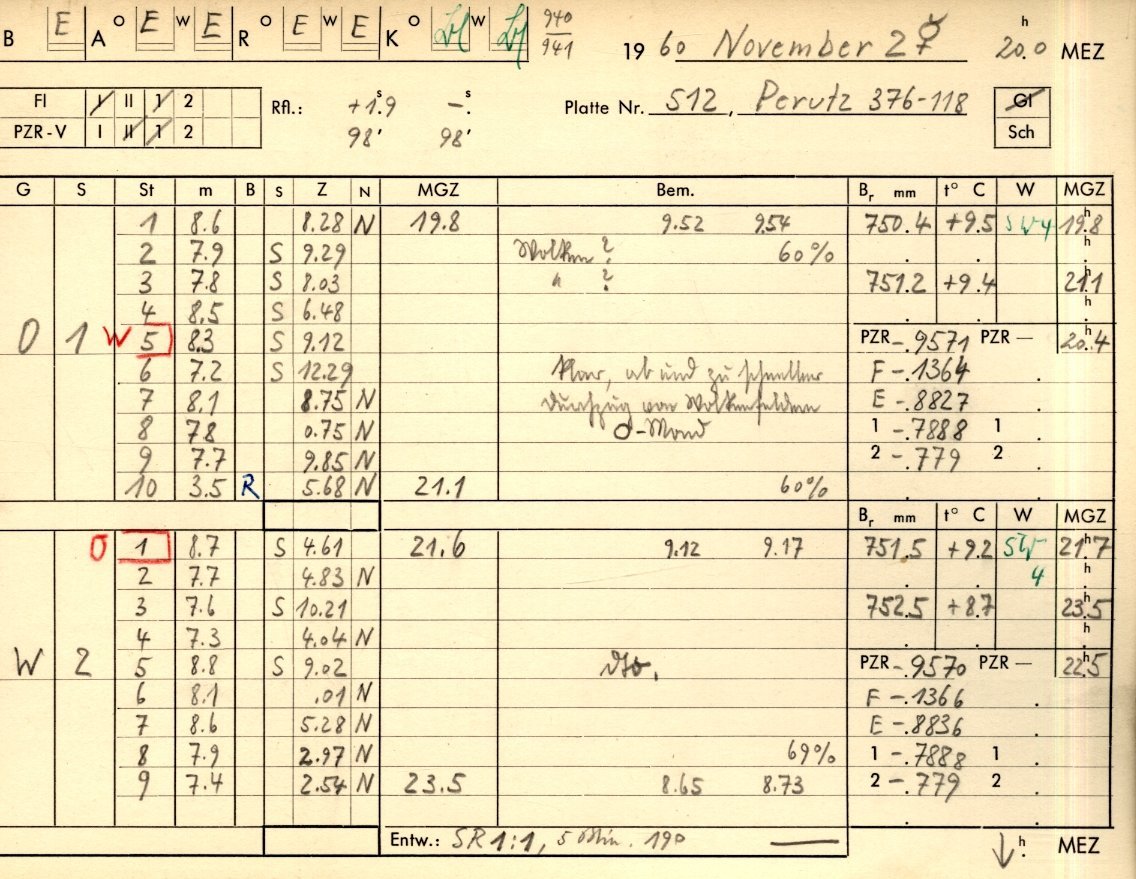 B E A O E W E R O E W E K O W 940
941
19 60 November 2 ☿ 20.0 h MEZ
FI I II 1 2 Rfl.: +1.9 s – s Platte Nr. 512, Perutz 376-118 Gl
PZR-V I II 1 2 98' 98' Sch
G S St m B S Z N MGZ Bem. Br mm t° C W MGZ
1 8.6 8.28 N 19.8 9.52 9.54 750.4 +9.5 SW4 19.8 h
2 7.9 S 9.29 Wolken ? 60%
3 7.8 S 8.03 " ? 751.2 +9.4 21.1
4 8.5 S 6.48
O 1 W 5 8.3 S 9.12 PZR -.9571 PZR – 20.4 h
6 7.2 S 12.29 klar, ab und zu schneller F -.1364
7 8.1 8.75 N Durchzug von Wolkenfeldern E -.8827
8 7.8 0.75 N Mond 1 -.7888 1
9 7.7 9.85 N 2 -.779 2
10 3.5 R 5.68 N 21.1 60%
Br mm t° C W MGZ
O 1 8.7 S 4.61 21.6 9.12 9.17 751.5 +9.2 SW 21.7 h
2 7.7 4.83 N 4
3 7.6 S 10.21 752.5 +8.7 23.5 h
4 7.3 4.04 N
W 2 5 8.8 S 9.02 dto. PZR -.9570 PZR – 22.5 h
6 8.1 .01 N F -.1366
7 8.6 5.28 N E -.8836
8 7.9 2.97 N 69% 1 -.7888 1
9 7.4 2.54 N 23.5 8.65 8.73 2 -.779 2
Entw.: SR 1:1, 5 Min. 19° h MEZ